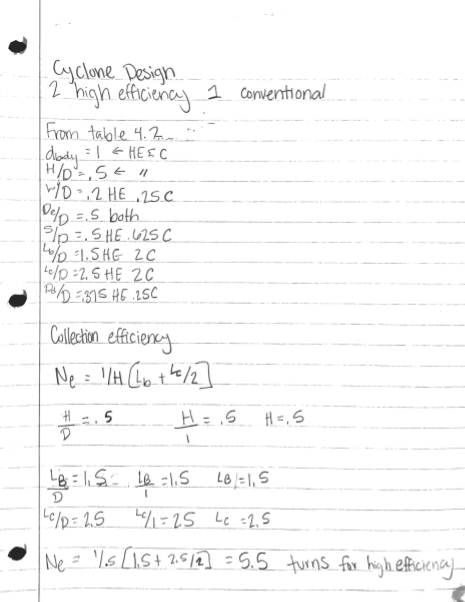 Cyclone Design
2 high efficiency 1 conventional
From table 4.2
dbody = 1 ← HE & C
H/D = .5 ← "
W/D = .2 HE .25C
De/D = .5 both
S/D = .5 HE .625 C
Lb/D = 1.5 HE 2C
Lc/D = 2.5 HE 2C
Dd/D = .375 HE .25C
Collection efficiency
Ne = 1/H [Lb + Lc/2]
H/D = .5 H/1 = .5 H = .5
LB/D = 1.5 LB/1 = 1.5 LB = 1.5
Lc/D = 2.5 Lc/1 = 2.5 Lc = 2.5
Ne = 1/.5 [1.5 + 2.5/2] = 5.5 turns for high efficiency